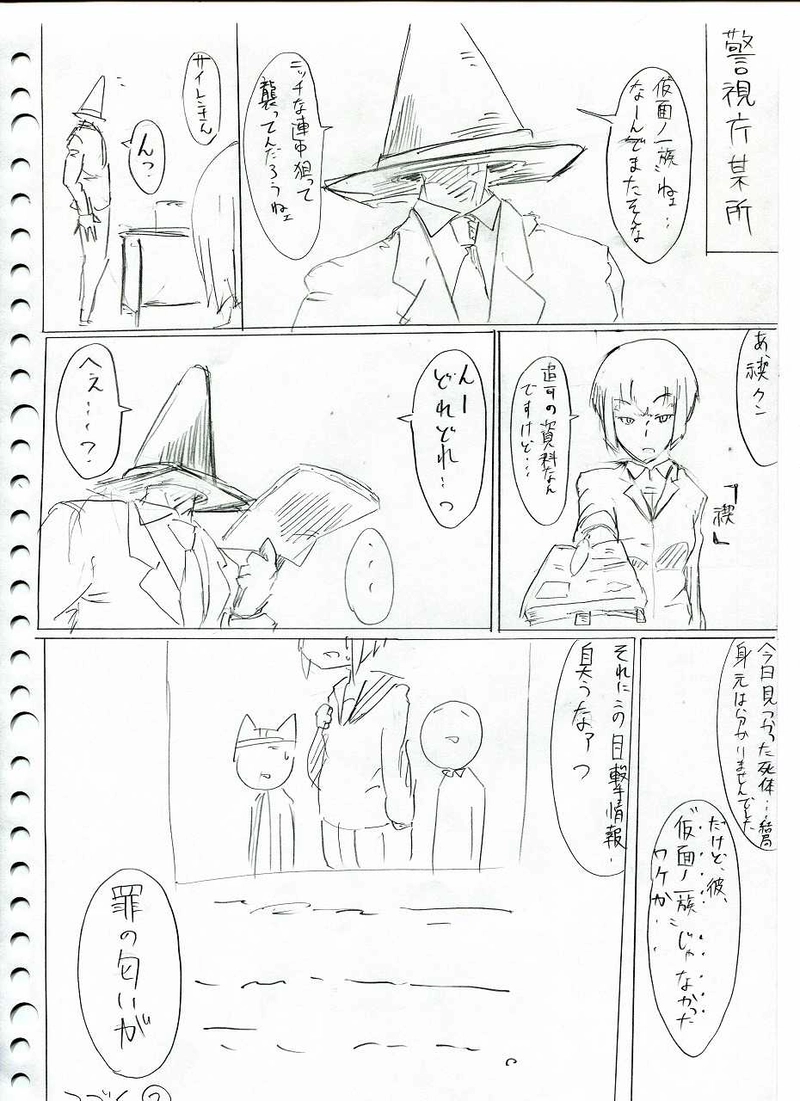 警視庁某所
“仮面ノ一族”ねェ…
なーんでまたそんな
ニッチな連中狙って
襲ってんだろうねェ
サイレンさん
んっ
あ、禊クン
追加の資料なん
ですけど…
「禊」
んー
どれどれ…っ
・・・
へぇ……?
今日見つかった死体…結局
身元は分かりませんでした
だけど、彼、
“仮面ノ一族”じゃなかった
ワケか…
それにこの目撃情報…
臭うなァっ
罪の匂いが
つづく?